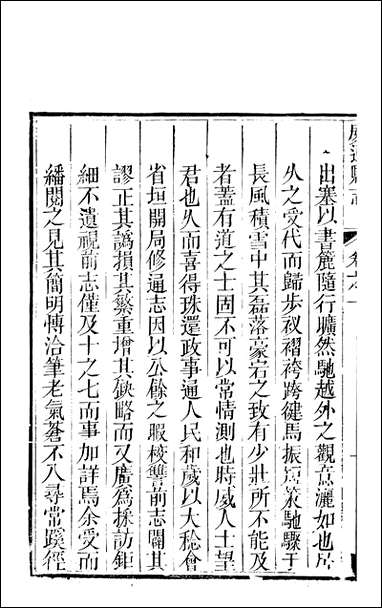 威遠縣志
卷之一
出塞以書簏隨行曠然馳越外之觀意灑如也居
久之受代而歸步衩褶袴跨健馬振短策馳驟于
長風積雪中其磊落豪宕之致有少壯所不能及
者蓋有道之士固不可以常情測也時威人士望
君也久而喜得珠還政事通人民和歲以大稔會
省垣開局修通志因以公餘之暇校讐前志闢其
謬正其譌損其繁重增其缺略而又廣為採訪鉅
細不遺視前志僅及十之七而事加詳焉余受而
繙閱之見其簡明愽洽筆老氣蒼不入尋常蹊徑